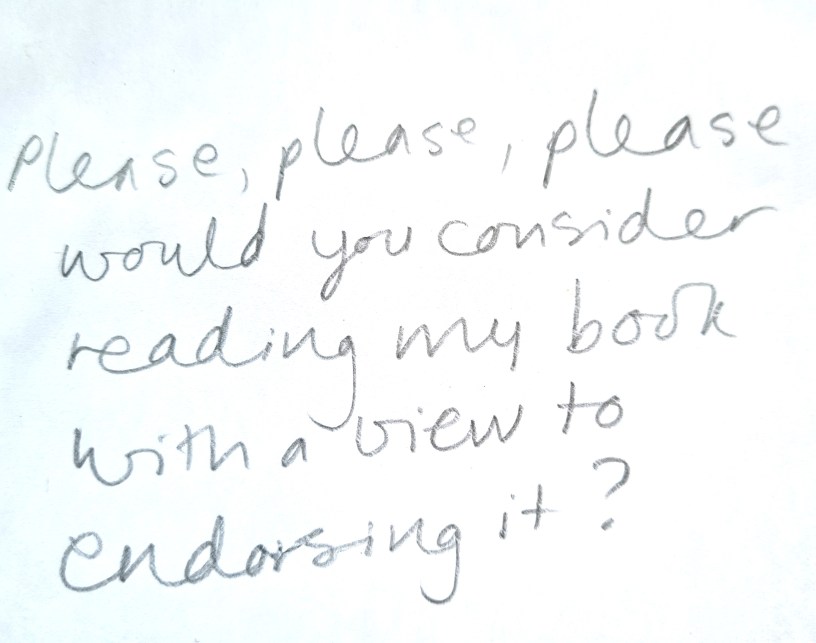 Please, please, please
would you consider
reading my book
with a view to
endorsing it?